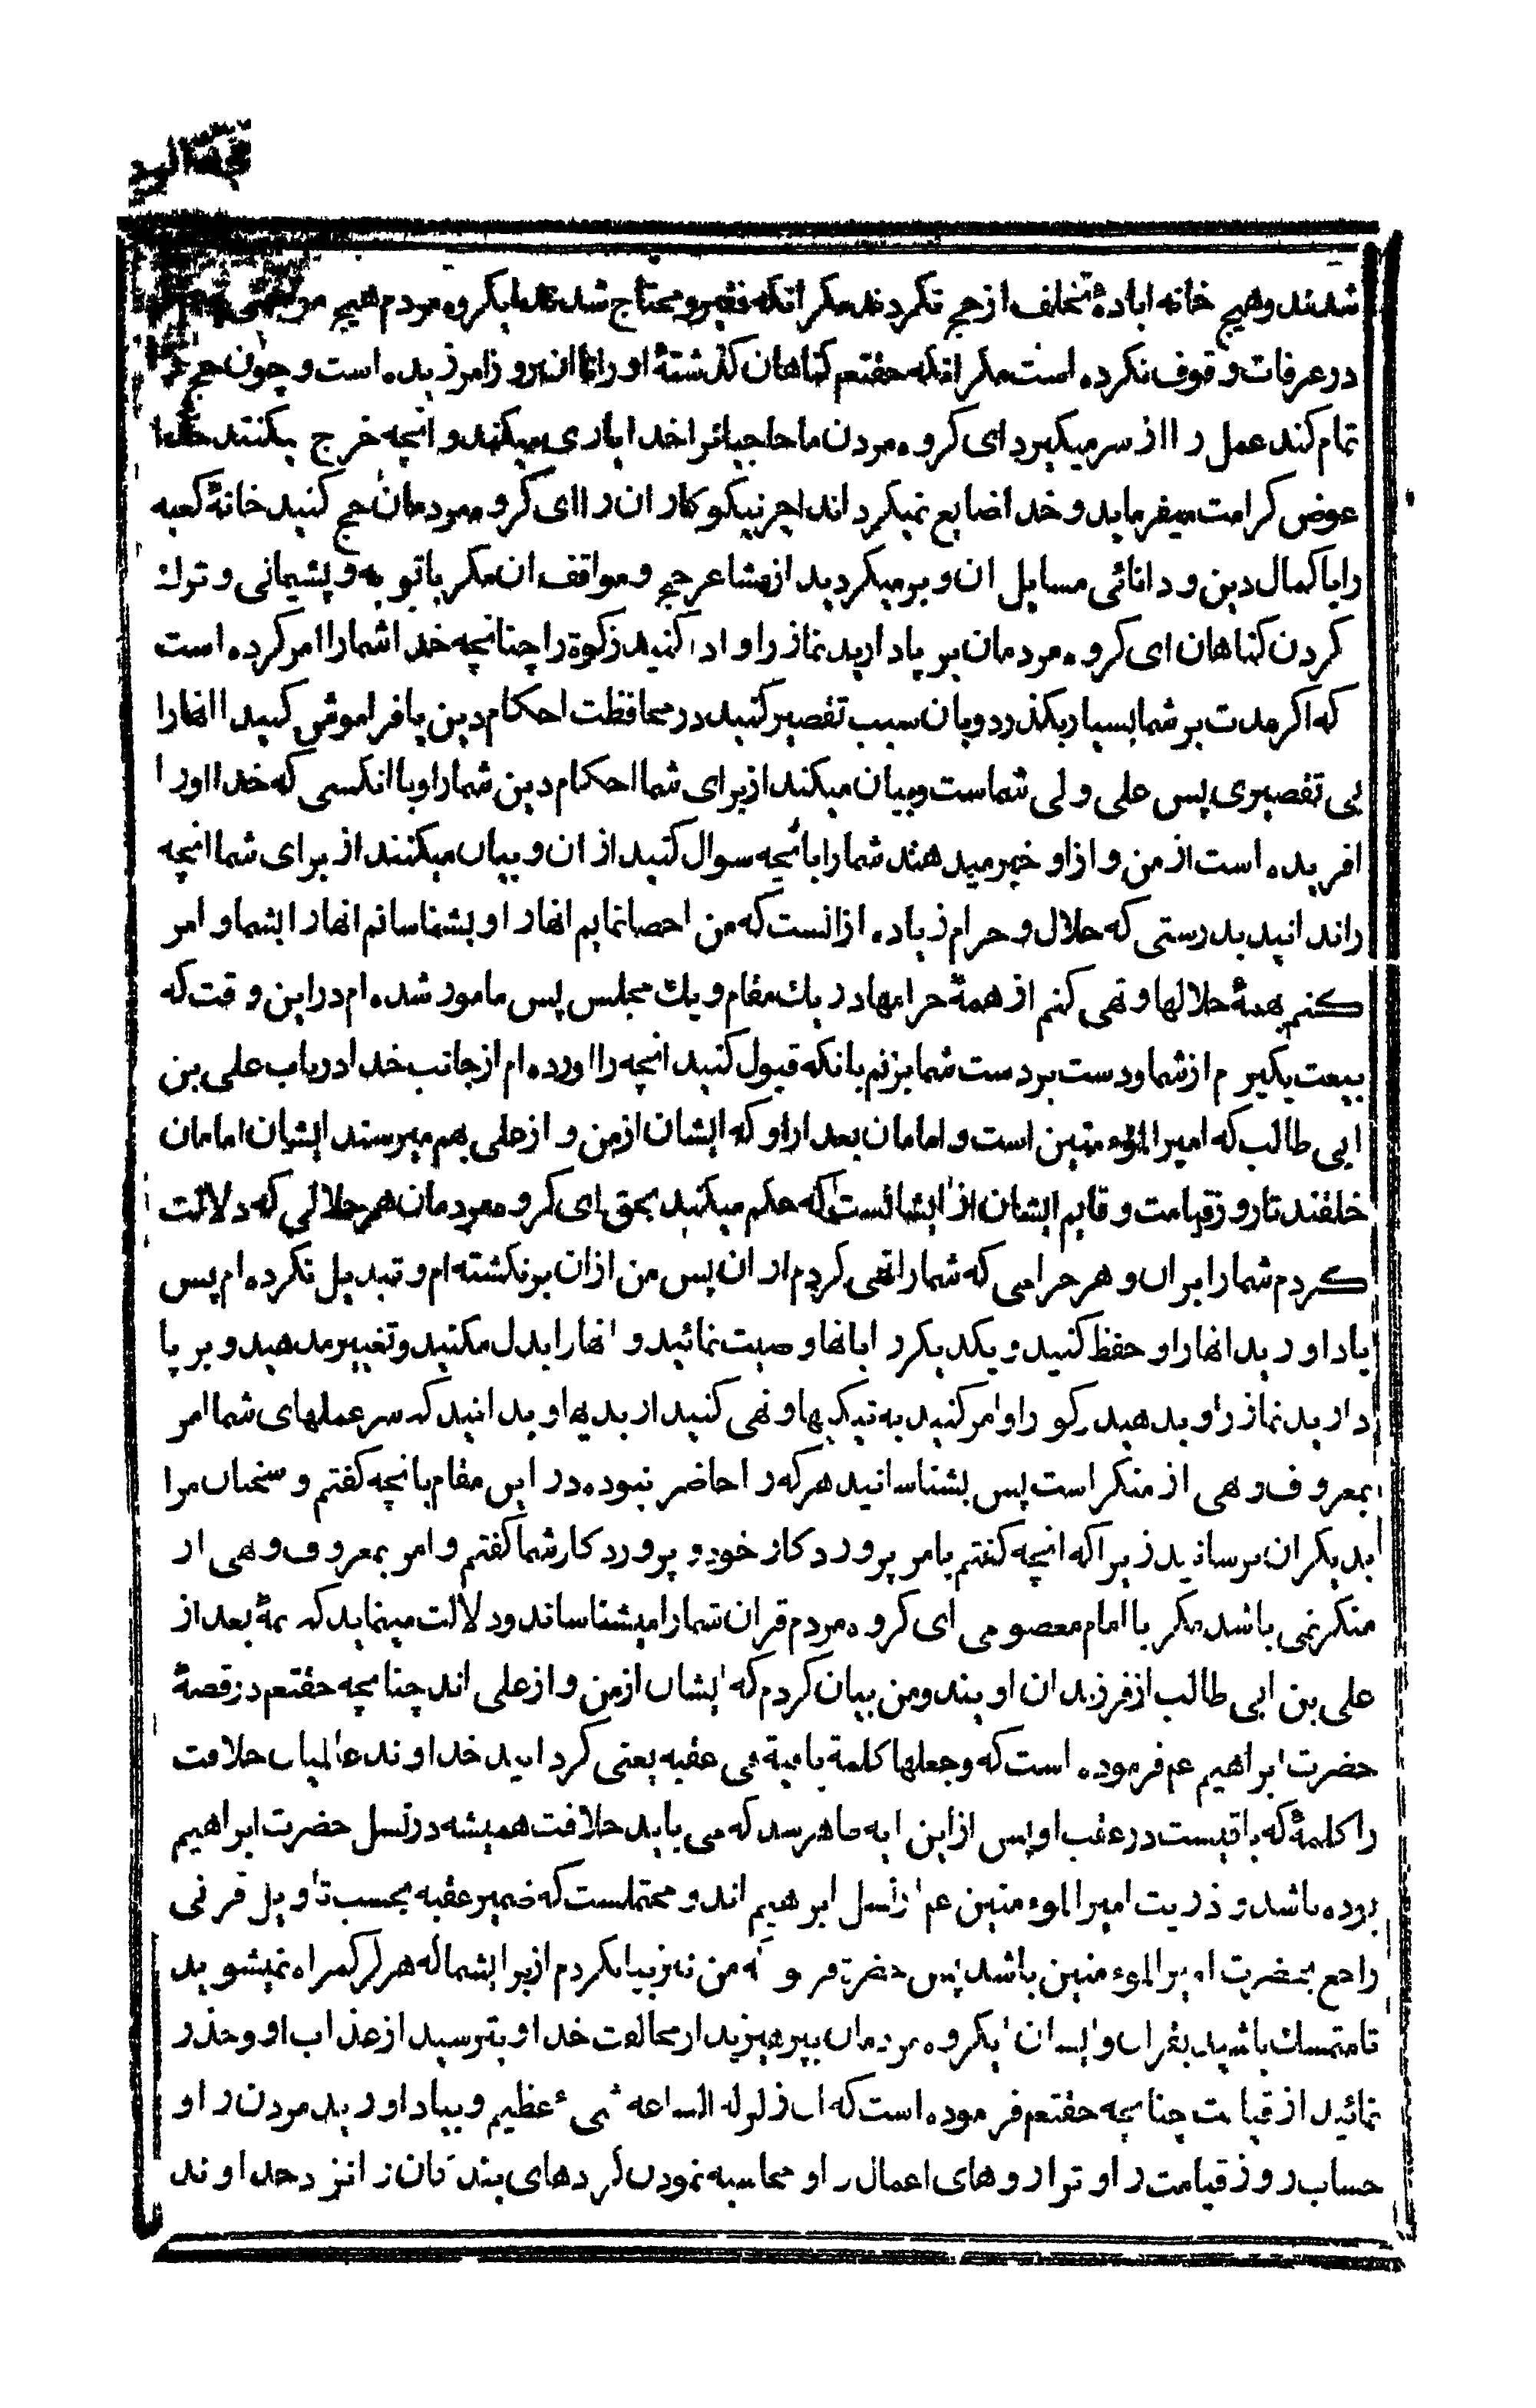 شدند وهیچ خانه ابادهٔ تخلف از حج نکردند مکر انکه فقیر و محتاج شدند ایکروه مردم هیچ
در عرفات وقوف نکرده است مکر انکه حقتعم کناهان کذشتهٔ او را تا ان روز امرزیده است و چون حج
تمام کند عمل را از سر میکیرد ای کروه مردن ما حاجیانرا خدا یاری میکند و انچه خرج میکنند خدا
عوض کرامت میفرماید و خدا ضایع نمیکرداند اجر نیکو کاران را ای کروه مردمان حج کنید خانهٔ کعبه
را با کمال دین و دانائی مسایل ان و بر میکردید از مشاعر حج و مواقف ان مکر با توبه و پشیمانی و ترك
کردن کناهان ای کروه مردمان بر پا دارید نماز را و ادا کنید زکوة را چنانچه خدا شما را امر کرده است
که اکر مدت بر شما بسیار بکذرد و بان سبب تقصیر کنید در محافظت احکام دین یا فراموش کنید انها را
بی تقصیری پس علی ولی شماست و بیان میکند از برای شما احکام دین شما را و با انکسی که خدا او را
افریده است از من و از او خبر میدهند شما را بانچه سوال کنید از ان و بیان میکنند از برای شما انچه
را ندانید بدرستی که حلال و حرام زیاده از انست که من احصا نمایم انها را و بشناسانم انها را بشما و امر
کنم بهمهٔ حلالها و نهی کنم از همهٔ حرامها در یك مقام و یك مجلس پس مامور شده ام در این وقت که
بیعت بکیرم از شما و دست بر دست شما بزنم بانکه قبول کنید انچه را اورده ام از جانب خدا در باب علی بن
ابی طالب که امیر المؤمنین است و امامان بعد از او که ایشان از من و از علی بهم میرسند ایشان امامان
خلقند تا روز قیامت و قایم ایشان از ایشانست که حکم میکند بحق ای کروه مردمان هر حلالی که دلالت
کردم شما را بران و هر حرامی که شما را نهی کردم از ان پس من از ان بر نکشته ام و تبدیل نکرده ام پس
یاد اورید انها را و حفظ کنید و یکدیکر را بانها وصیت نمائید و انها را بدل مکنید و تغییر مدهید و بر پا
دارید نماز را و بدهید زکو را و امر کنید به نیکیها و نهی کنید از بدیها و بدانید که سر عملهای شما امر
بمعروف و هی از منکر است پس بشناسانید هر که را حاضر نبوده در این مقام بانچه کفتم و سخنان مرا
بدیکران برسانید زیرا که انچه کفتم بامر پروردکار خود و پروردکار شما کفتم و امر بمعروف و هی از
منکر نمی باشد مکر با امام معصومی ای کروه مردم قران شما را میشناساند و دلالت مینماید که ئمهٔ بعد از
علی بن ابی طالب از فرزندان اویند و من بیان کردم که ایشان از من و از علی اند چنانچه حقتعم در قصهٔ
حضرت ابراهیم عم فرموده است که وجعلها کلمة باقیة فی عقبه یعنی کردانید خداوند عالمیان خلافت
را کلمهٔ که باقیست در عقب او پس از این ایه ظاهر رسد که می باید خلافت همیشه در نسل حضرت ابراهیم
بوده باشد و ذریت امیر المؤمنین عم از نسل ابرهیم اند و محتملست که ضمیر عقبه بحسب تاویل قرنی
راجع بحضرت امیر المؤمنین باشد پس حضرت فرمو که من نیز بیان کردم از برا بشما که هرکز کمراه نمیشوید
تا متمسك باشید بقران و ایشان ایکروه مردمان بپرهیزید از مخالفت خدا و بترسید از عذاب او و حذر
نمائید از قیامت چنانچه حقتعم فرموده است که ان زلزله الساعه شیء عظیم و بیاد اورید مردن را و
حساب روز قیامت را و ترازوهای اعمال را و محاسبه نمودن کردهای بندکان را نزد خداوند